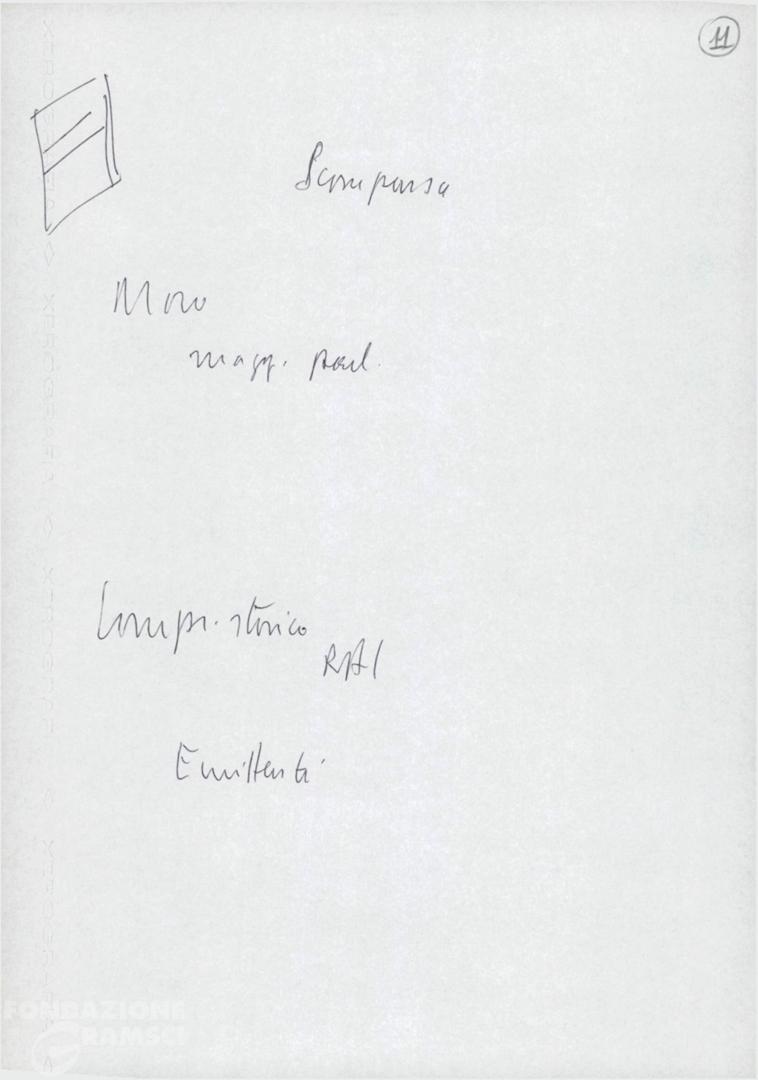 11
Scomparsa
Moro
magg. parl.
Compr. storico
RAI
Emittenti
FONDAZIONE
GRAMSCI